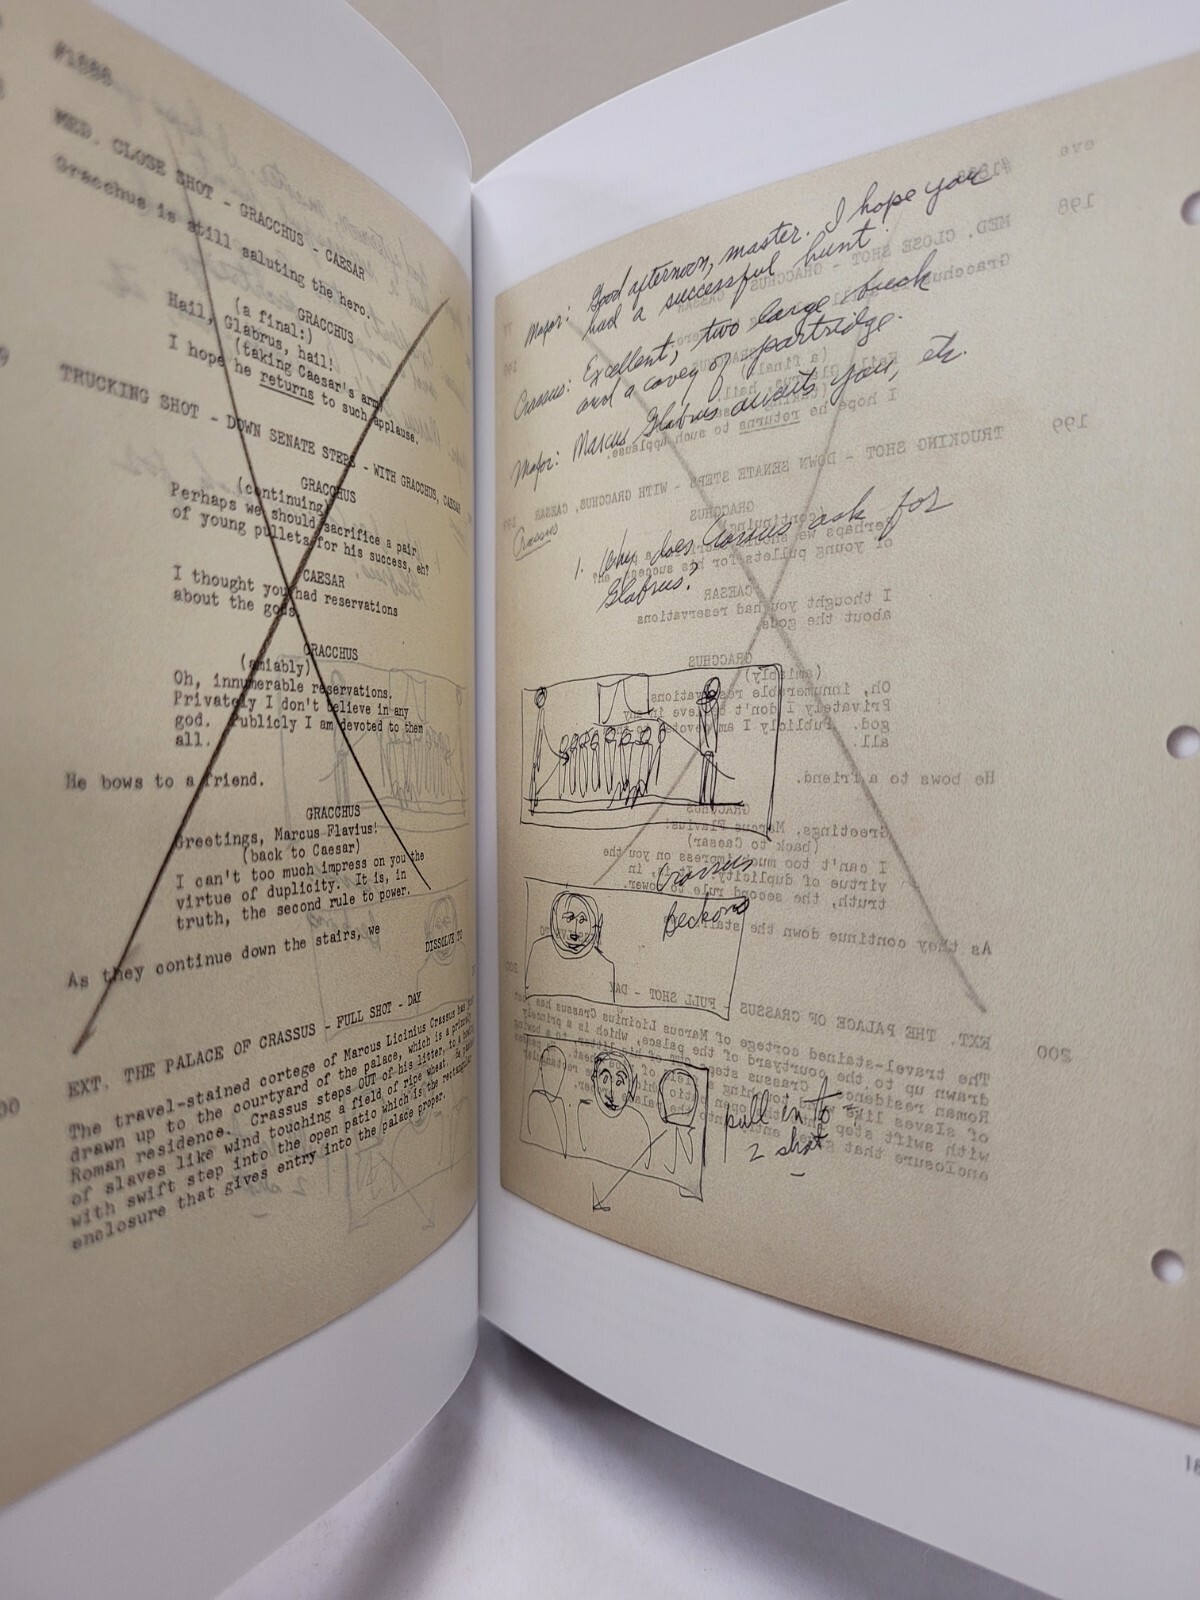 #1886
MED. CLOSE SHOT - GRACCHUS - CAESAR
Gracchus is still saluting the hero.
GRACCHUS
(a final:)
Hail, Glabrus, hail!
(taking Caesar's arm)
I hope he returns to such applause.
TRUCKING SHOT - DOWN SENATE STEPS - WITH GRACCHUS, CAESAR
GRACCHUS
(continuing)
Perhaps we should sacrifice a pair
of young pullets for his success, eh?
CAESAR
I thought you had reservations
about the gods.
GRACCHUS
(amiably)
Oh, innumerable reservations.
Privately I don't believe in any
god. Publicly I am devoted to them
all.
He bows to a friend.
GRACCHUS
Greetings, Marcus Flavius!
(back to Caesar)
I can't too much impress on you the
virtue of duplicity. It is, in
truth, the second rule to power.
As they continue down the stairs, we
DISSOLVE TO
EXT. THE PALACE OF CRASSUS - FULL SHOT - DAY
The travel-stained cortege of Marcus Licinius Crassus has just
drawn up to the courtyard of the palace, which is a princely
Roman residence. Crassus steps OUT of his litter, to a bowing
of slaves like wind touching a field of ripe wheat. He passes
with swift step into the open patio which is the rectangular
enclosure that gives entry into the palace proper.
Major: Good afternoon, master. I hope you
had a successful hunt.
Crassus: Excellent, two large buck
and a covey of partridge.
Major: Marcus Glabrus awaits you, etc.
Crassus
1. Why does Crassus ask for
Glabrus?
Crassus
Beckons
pull in to
2 shot